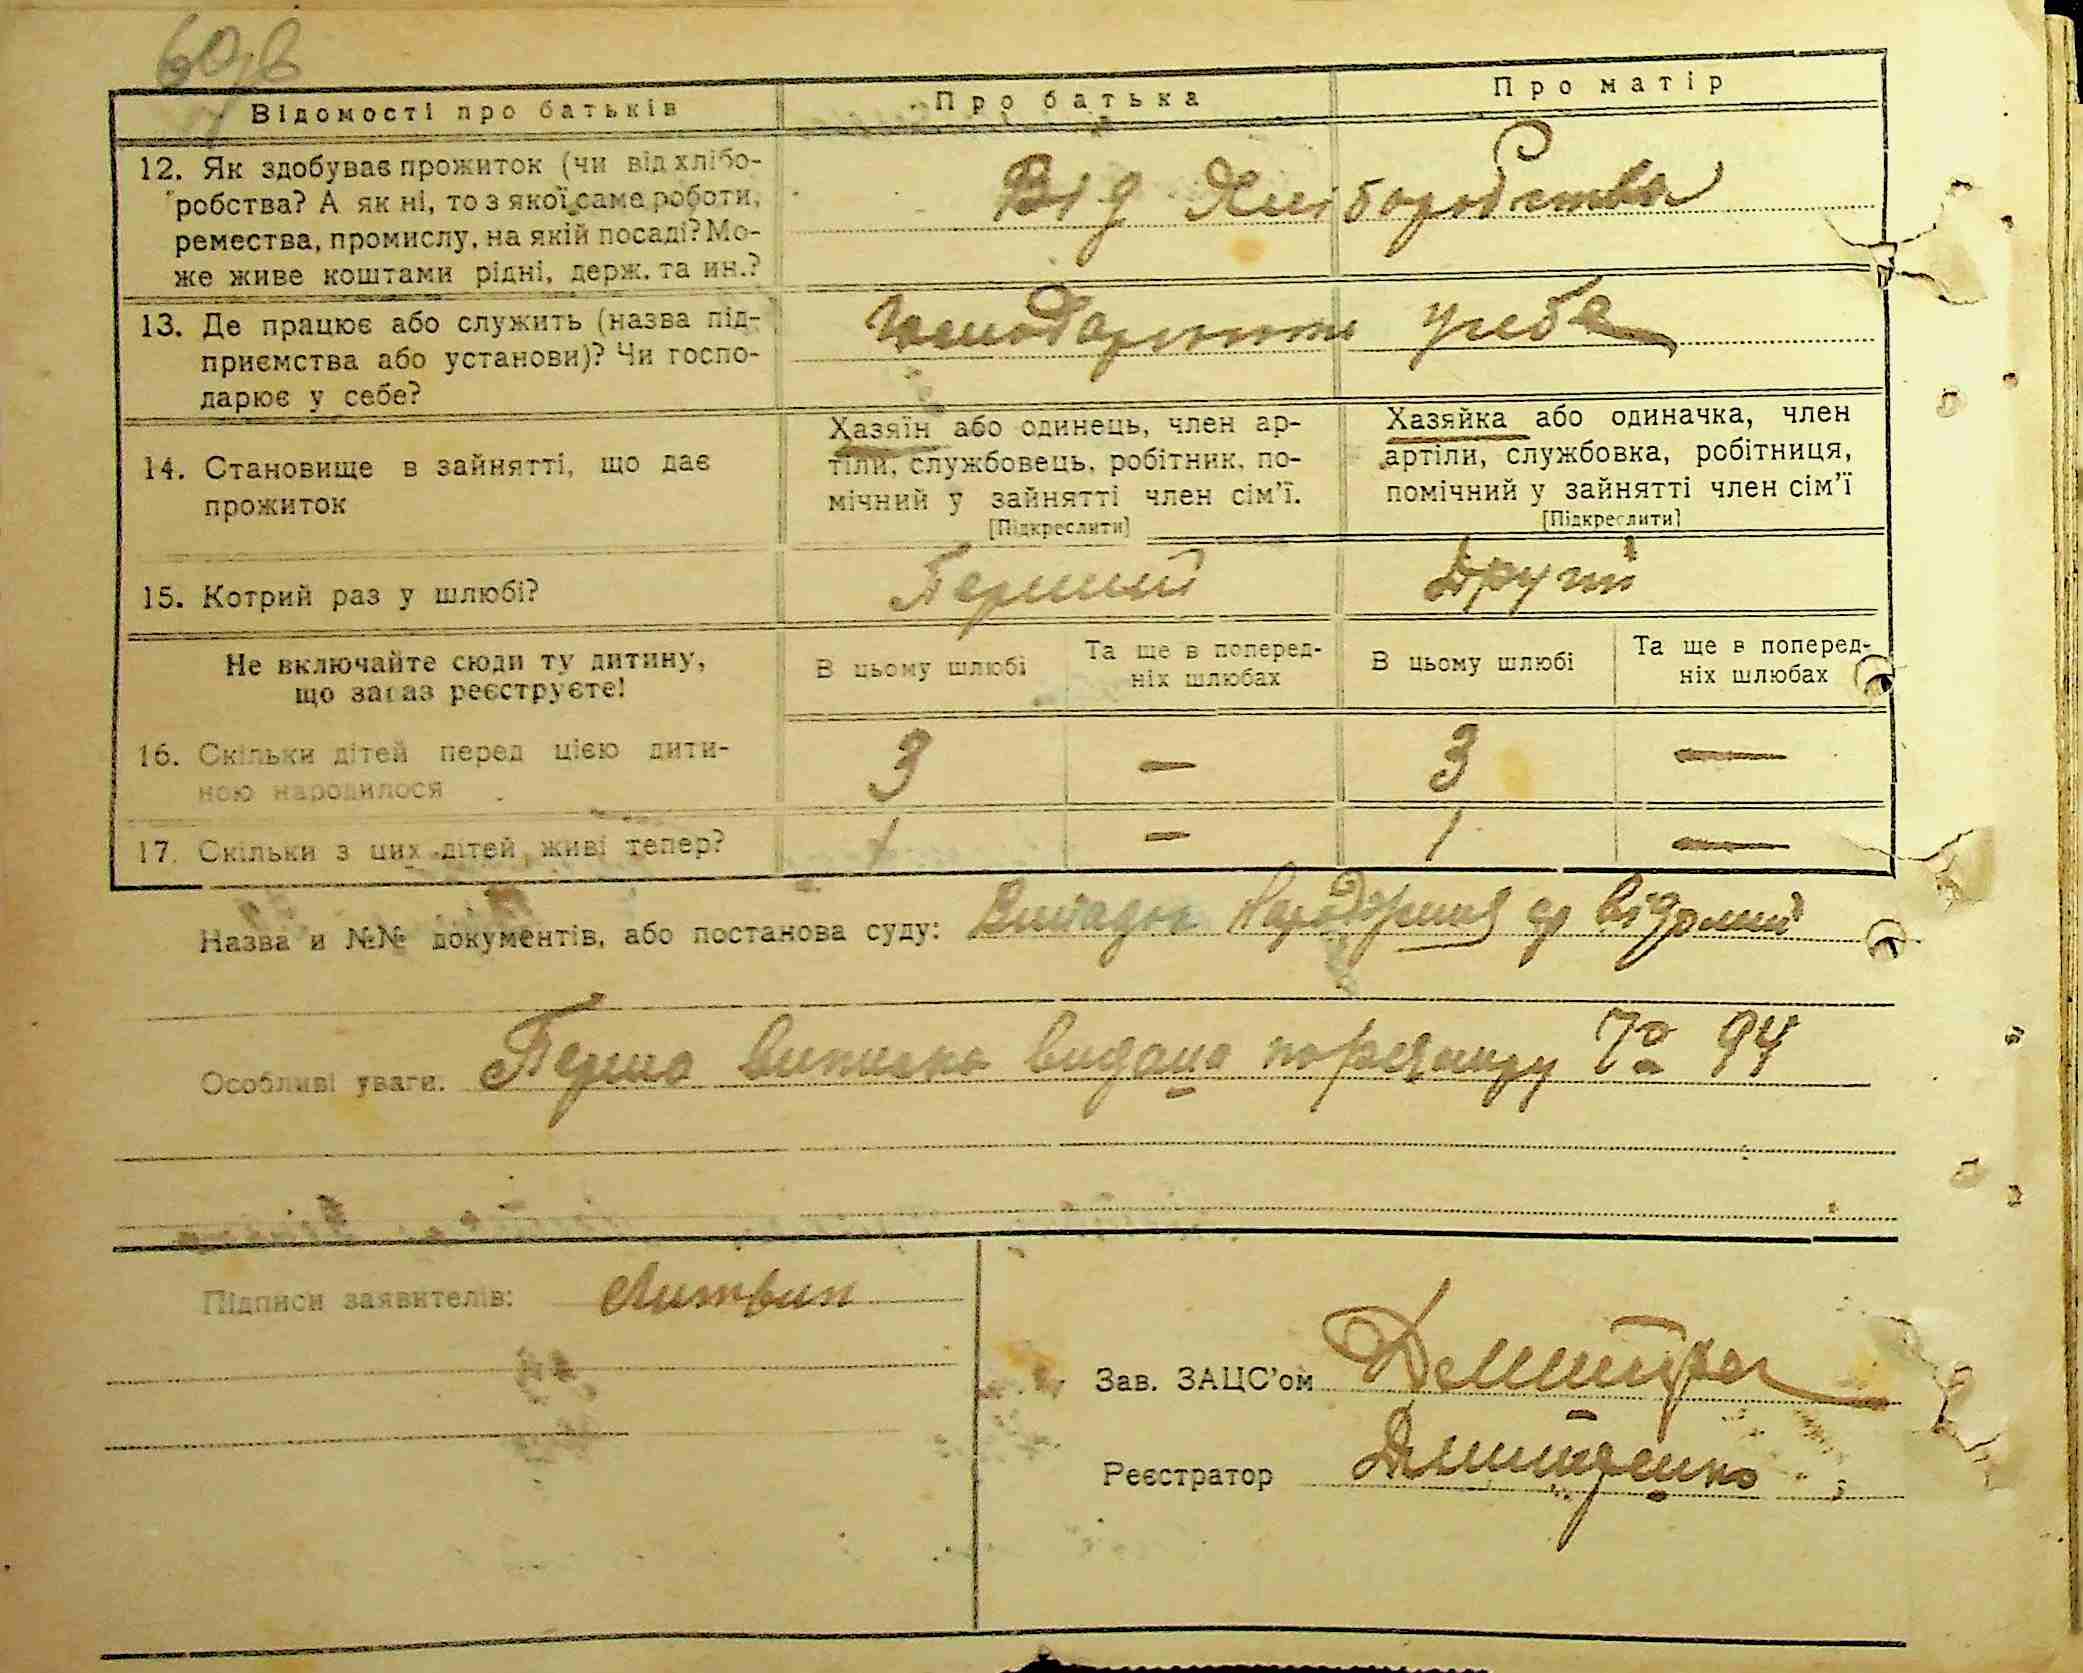 Відомості про батьків
Про батька
Про матір
12. Як здобуває прожиток (чи від хлібо-
робства? А як ні, то з якої саме роботи,
ремества, промислу, на якій посаді? Мо-
же живе коштами рідні, держ. та ин.?
Від Хліборобства
13. Де працює або служить (назва під-
приємства або установи)? Чи госпо-
дарює у себе?
у себе
14. Становище в зайнятті, що дає
прожиток
Хазяїн або одинець, член ар-
тіли, службовець, робітник, по-
мічний у зайнятті член сім'ї.
[Підкреслити]
Хазяйка або одиначка, член
артіли, службовка, робітниця,
помічний у зайнятті член сім'ї
[Підкреслити]
15. Котрий раз у шлюбі?
Перший
Другий
Не включайте сюди ту дитину,
що зараз реєструєте!
В цьому шлюбі
Та ще в поперед-
ніх шлюбах
В цьому шлюбі
Та ще в поперед-
ніх шлюбах
16. Скільки дітей перед цією дити-
ною народилося
3 — 3 —
17. Скільки з цих дітей живі тепер?
1 — 1 —
Назва и №№ документів, або постанова суду: Випадок народження відомий
Особливі уваги. Перша виписка видана 94
Підписи заявителів: Литвин
Зав. ЗАЦС'ом
Реєстратор Дмитренко